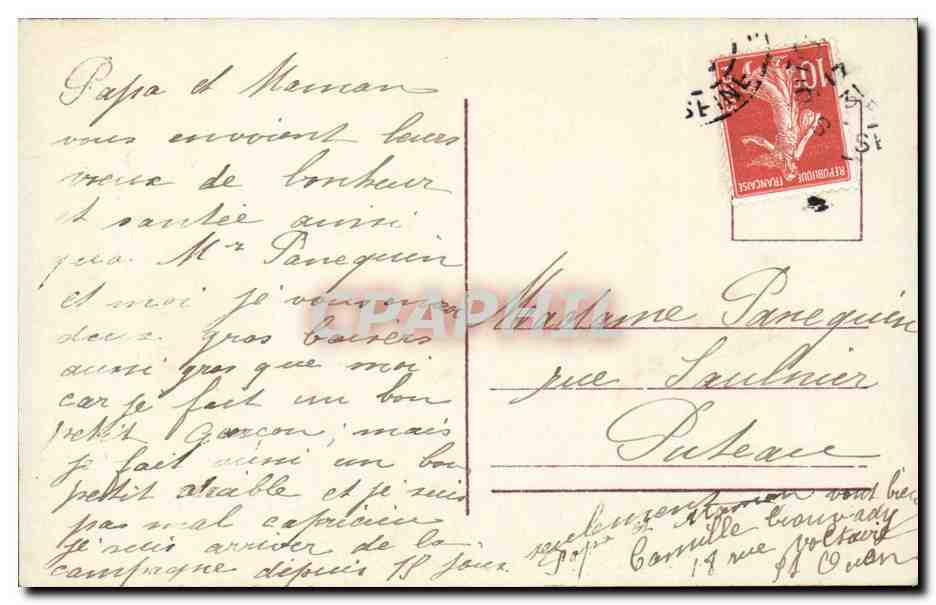 Papa et Maman
vous envoient leurs
vœux de bonheur
et santée aussi
que Mr Panequin
et moi je vous envoi
deux gros baisers
aussi gros que moi
car je fait un bon
petit garcon, mais
je fait aussi un bon
petit diable et je suis
pas mal capricieu
je suis arriver de la
campagne depuis 15 jours
seulement
Papa et Maman vont bien
Camille
18 rue Voltaire
St Ouen
Madame Panequin
rue Saulnier
Puteau
10
REPUBLIQUE
FRANÇAISE
SEINE
CPAPHIL